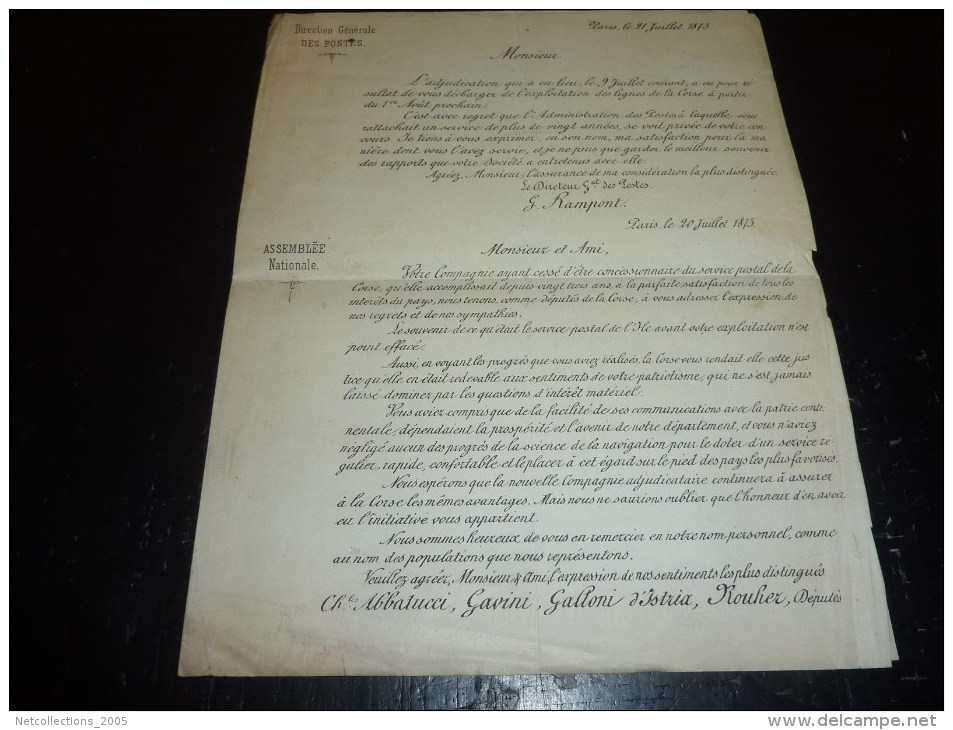 Direction Générale
DES POSTES.
Paris, le 21 Juillet 1873.
Monsieur
L'adjudication qui a eu lieu, le 9 Juillet courant, a eu pour ré
sultat de vous décharger de l'exploitation des lignes de la Corse à partir
du 1er Août prochain.
C'est avec regret que l'Administration des Postes à laquelle, vous
rattachait un service de plus de vingt années, se voit privée de votre con
cours. Je tiens à vous exprimer, en son nom, ma satisfaction pour la ma
nière dont vous l'avez servie, et je ne puis que garder le meilleur souvenir
des rapports que votre Société a entretenus avec elle.
Agréez, Monsieur, l'assurance de ma considération la plus distinguée.
Le Directeur Gal des Postes.
G. Rampont.
Paris, le 20 Juillet 1873.
ASSEMBLÉE
Nationale.
Monsieur et Ami,
Votre Compagnie ayant cessé d'être concessionnaire du service postal de la
Corse, qu'elle accomplissait depuis vingt trois ans, à la parfaite satisfaction de tous les
intérêts du pays, nous tenons, comme députés de la Corse, à vous adresser l'expression de
nos regrets et de nos sympathies.
Le souvenir de ce qu'était le service postal de l'Ile avant votre exploitation n'est
point effacé.
Aussi, en voyant les progrès que vous aviez réalisés, la Corse vous rendait elle cette jus
tice qu'elle en était redevable aux sentiments de votre patriotisme, qui ne s'est jamais
laissé dominer par les questions d'intérêt matériel.
Vous aviez compris que de la facilité de ses communications avec la patrie conti
nentale, dépendaient la prospérité et l'avenir de notre département, et vous n'avez
négligé aucun des progrès de la science de la navigation pour le doter d'un service ré
gulier, rapide, confortable et le placer à cet égard sur le pied des pays les plus favorisés.
Nous espérons que la nouvelle Compagnie adjudicataire continuera à assurer
à la Corse les mêmes avantages. Mais nous ne saurions oublier que l'honneur d'en avoir
eu l'initiative vous appartient.
Nous sommes heureux de vous en remercier en notre nom personnel, comme
au nom des populations que nous représentons.
Veuillez agréer, Monsieur & Ami, l'expression de nos sentiments les plus distingués
Chles Abbatucci, Gavini, Galloni d'Istria, Rouher, Députés
Netcollections_2005
delcampe.net